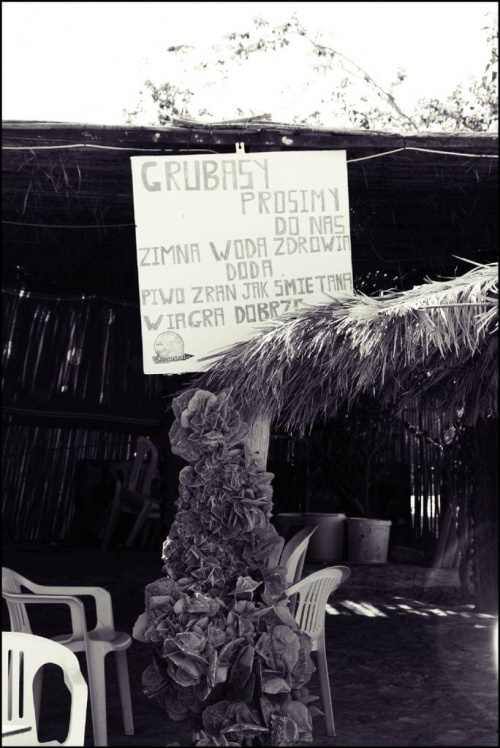 GRUBASY
PROSIMY
DO NAS
ZIMNA WODA ZDROWIA
DODA.
PIWO ZRAN JAK SMIETANA
WIAGRA DOBRZE